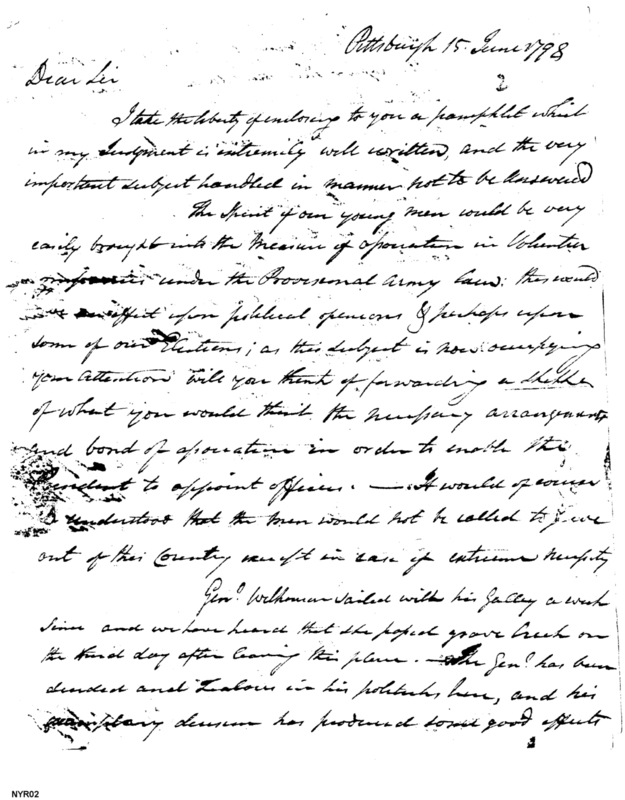 Pittsburgh 15 June 1798
2
Dear Sir
I take the liberty of enclosing to you a pamphlet which
in my Judgment is extremely well written, and the very
important subject handled in manner not to be Answered
The Spirit of our young men would be very
easily brought into the Measure of association in Volunteer
under the Provisional Army Law; this would
an effect upon political opinions & perhaps upon
some of our Elections; as this subject is now occupying
your attention will you think of forwarding a
of what you would think the necessary arrangements
and bond of association in order to enable the
President to appoint officers. — It would of course
understood that the men would not be called to
out of this Country except in case of extreme necessity
Genl Wilkinson sailed with his Galley a week
since and we have heard that she passed grave Creek on
the third day after leaving this place. — The Genl. has been
decided and Zealous in his politicks here, and his
has produced some good effects
NYR02